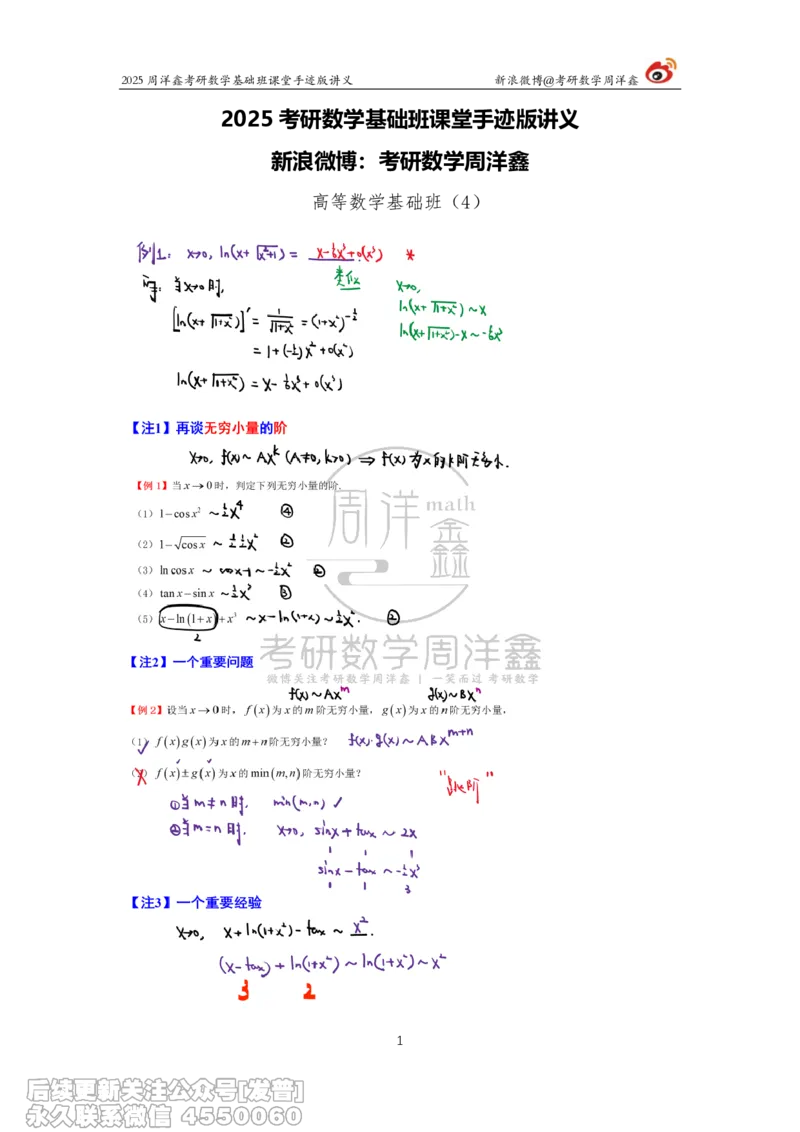 2025周洋鑫考研数学基础班课堂手迹版讲义 新浪微博@考研数学周洋鑫
2025考研数学基础班课堂手迹版讲义
新浪微博：考研数学周洋鑫
高等数学基础班（4）
例1: x→0, ln(x+√(x²+1)) = x-1/6x³+o(x³) *
类似x
当x→0时, x→0,
[ln(x+√(1+x²))]' = 1/√(1+x²) = (1+x²)^(-1/2) ln(x+√(1+x²))~x
= 1+(-1/2)x²+o(x²) ln(x+√(1+x²))-x~-1/6x³
ln(x+√(1+x²)) = x-1/6x³+o(x³)
【注1】再谈无穷小量的阶
x→0, f(x)~Ax^k (A≠0, k>0) ⇒ f(x)为x的k阶无穷小.
【例1】当x→0时，判定下列无穷小量的阶.
（1）1-cosx² ~1/2x⁴ ④
（2）1-√cosx ~1/2·1/2x² ②
（3）lncosx ~ cosx-1~-1/2x² ②
（4）tanx-sinx ~1/2x³ ③
（5）x-ln(1+x)+x³ ~x-ln(1+x)~1/2x². ②
2
【注2】一个重要问题
f(x)~Ax^m g(x)~Bx^n
【例2】设当x→0时，f(x)为x的m阶无穷小量，g(x)为x的n阶无穷小量，
（1）√ f(x)g(x)为x的m+n阶无穷小量？ f(x)·g(x)~ABx^(m+n)
（2）× f(x)±g(x)为x的min(m,n)阶无穷小量？
①当m≠n时, min(m,n) √
②当m=n时, x→0, sinx+tanx ~ 2x
1 1 1
sinx-tanx ~-1/2x³
1 1 3
【注3】一个重要经验
x→0, x+ln(1+x²)-tanx ~ x².
(x-tanx)+ln(1+x²)~ln(1+x²)~x²
3 2
周洋鑫
math
考研数学周洋鑫
微博关注考研数学周洋鑫 | 一笑而过 考研数学
1
后续更新关注公众号[发普]
永久联系微信 4550060